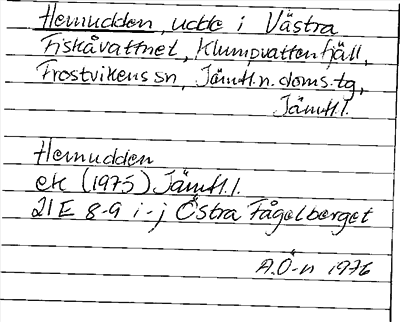 Hemudden, udde i Västra
Fiskåvattnet, Klumpvattenfjäll,
Frostvikens sn, Jämtl.n.doms.tg,
Jämtl.l.
Hemudden
ek (1975) Jämtl.l.
21E 8-9 i-j Östra Fågelberget
A.Ö-n 1976